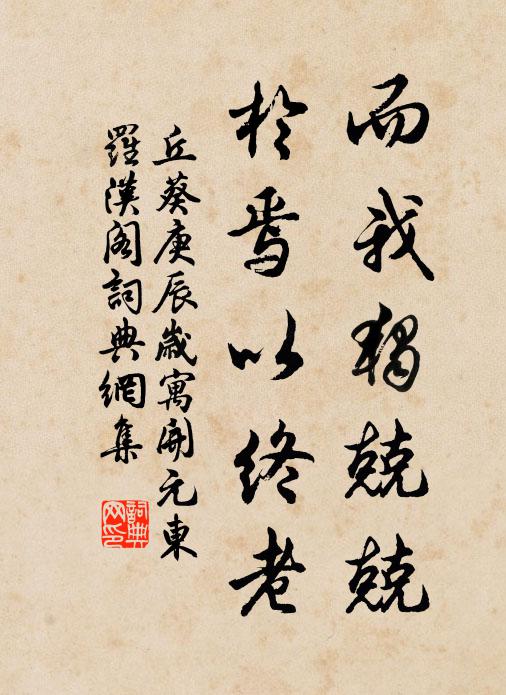 而我獨兢兢
於焉以終老
丘葵庚辰歲寓開元東
羅漢閣詞典網集
詞典网印